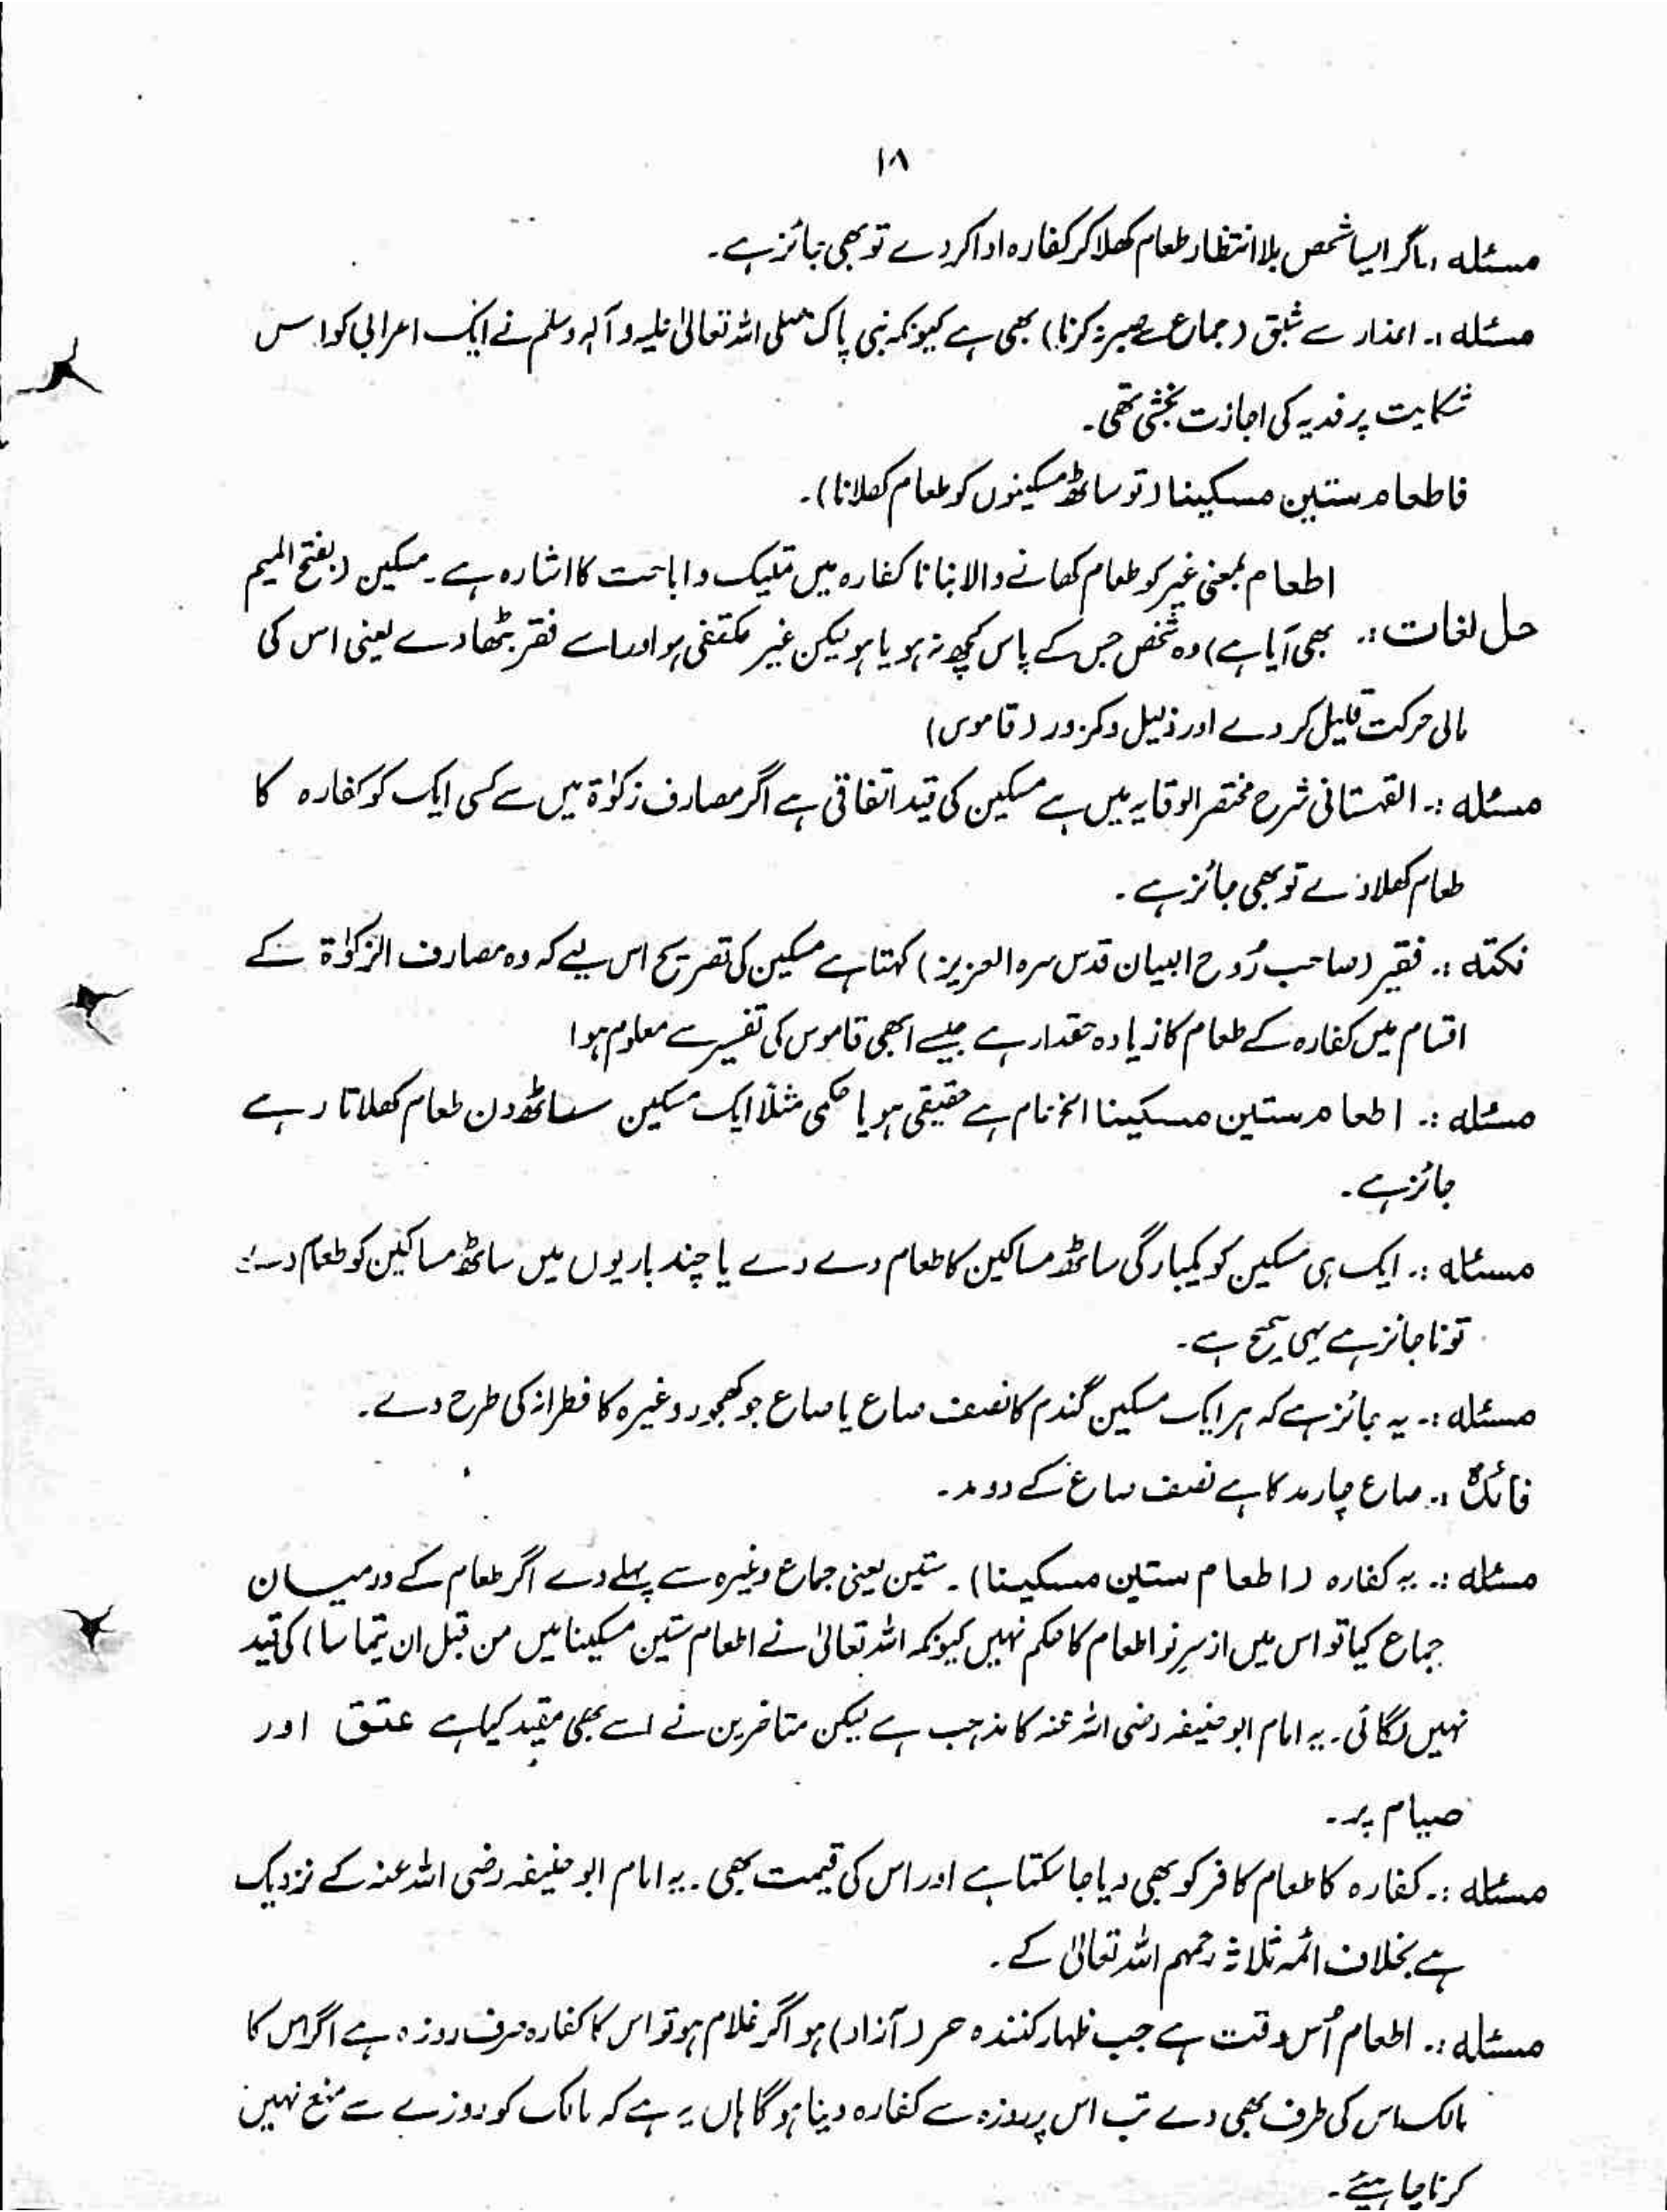 ۱۸
مسئلہ :۔ اگر ایسا شخص بلا انتظار طعام کھلا کر کفارہ ادا کر دے تو بھی جائز ہے۔
مسئلہ :۔ اعذار سے شبق (جماع سے صبر نہ کرنا) بھی ہے کیونکہ نبی پاک صلی اللہ تعالیٰ علیہ وآلہ وسلم نے ایک اعرابی کو اس
شکایت پر فدیہ کی اجازت بخشی تھی۔
فاطعام ستین مسکینا (تو ساٹھ مسکینوں کو طعام کھلانا)۔
اطعام بمعنی غیر کو طعام کھانے والا بنانا کفارہ میں تملیک و اباحت کا اشارہ ہے۔ مسکین (بفتح المیم
حل لغات :۔ بھی آیا ہے) وہ شخص جس کے پاس کچھ نہ ہو یا ہو لیکن غیر مکتفی ہو اور اسے فقر بٹھا دے یعنی اس کی
مالی حرکت قلیل کر دے اور ذلیل و کمزور (قاموس)
مسئلہ :۔ القہستانی شرح مختصر الوقایہ میں ہے مسکین کی قید اتفاقی ہے اگر مصارف زکوٰۃ میں سے کسی ایک کو کفارہ کا
طعام کھلا دے تو بھی جائز ہے۔
نکتہ :۔ فقیر (صاحب رُوح البیان قدس سرہ العزیز) کہتا ہے مسکین کی تصریح اس لیے کہ وہ مصارف الزکوٰۃ کے
اقسام میں کفارہ کے طعام کا زیادہ حقدار ہے جیسے ابھی قاموس کی تفسیر سے معلوم ہوا
مسئلہ :۔ اطعام ستین مسکینا الخ عام ہے حقیقی ہو یا حکمی مثلاً ایک مسکین ساٹھ دن طعام کھلاتا رہے
جائز ہے۔
مسئلہ :۔ ایک ہی مسکین کو یکبارگی ساٹھ مساکین کا طعام دے دے یا چند باریوں میں ساٹھ مساکین کو طعام دے
تو ناجائز ہے یہی صحیح ہے۔
مسئلہ :۔ یہ جائز ہے کہ ہر ایک مسکین گندم کا نصف صاع یا صاع جو کھجور وغیرہ کا فطرانہ کی طرح دے۔
فائدہ :۔ صاع چار مد کا ہے نصف صاع کے دو مد۔
مسئلہ :۔ یہ کفارہ (اطعام ستین مسکینا)۔ ستین یعنی جماع وغیرہ سے پہلے دے اگر طعام کے درمیان
جماع کیا تو اس میں از سرِ نو اطعام کا حکم نہیں کیونکہ اللہ تعالیٰ نے اطعام ستین مسکینا میں من قبل ان یتماسا) کی قید
نہیں لگائی۔ یہ امام ابو حنیفہ رضی اللہ عنہ کا مذہب ہے لیکن متاخرین نے اسے بھی مقید کیا ہے عتق اور
صیام پر۔
مسئلہ :۔ کفارہ کا طعام کافر کو بھی دیا جا سکتا ہے اور اس کی قیمت بھی۔ یہ امام ابو حنیفہ رضی اللہ عنہ کے نزدیک
ہے بخلاف ائمہ ثلاثہ رحمہم اللہ تعالیٰ کے۔
مسئلہ :۔ اطعام اُس وقت ہے جب ظہار کنندہ حر (آزاد) ہو اگر غلام ہو تو اس کا کفارہ صرف روزہ ہے اگر اس کا
مالک اس کی طرف بھی دے تب اس پر روزہ سے کفارہ دینا ہوگا ہاں یہ ہے کہ مالک کو روزے سے منع نہیں
کرنا چاہیئے۔